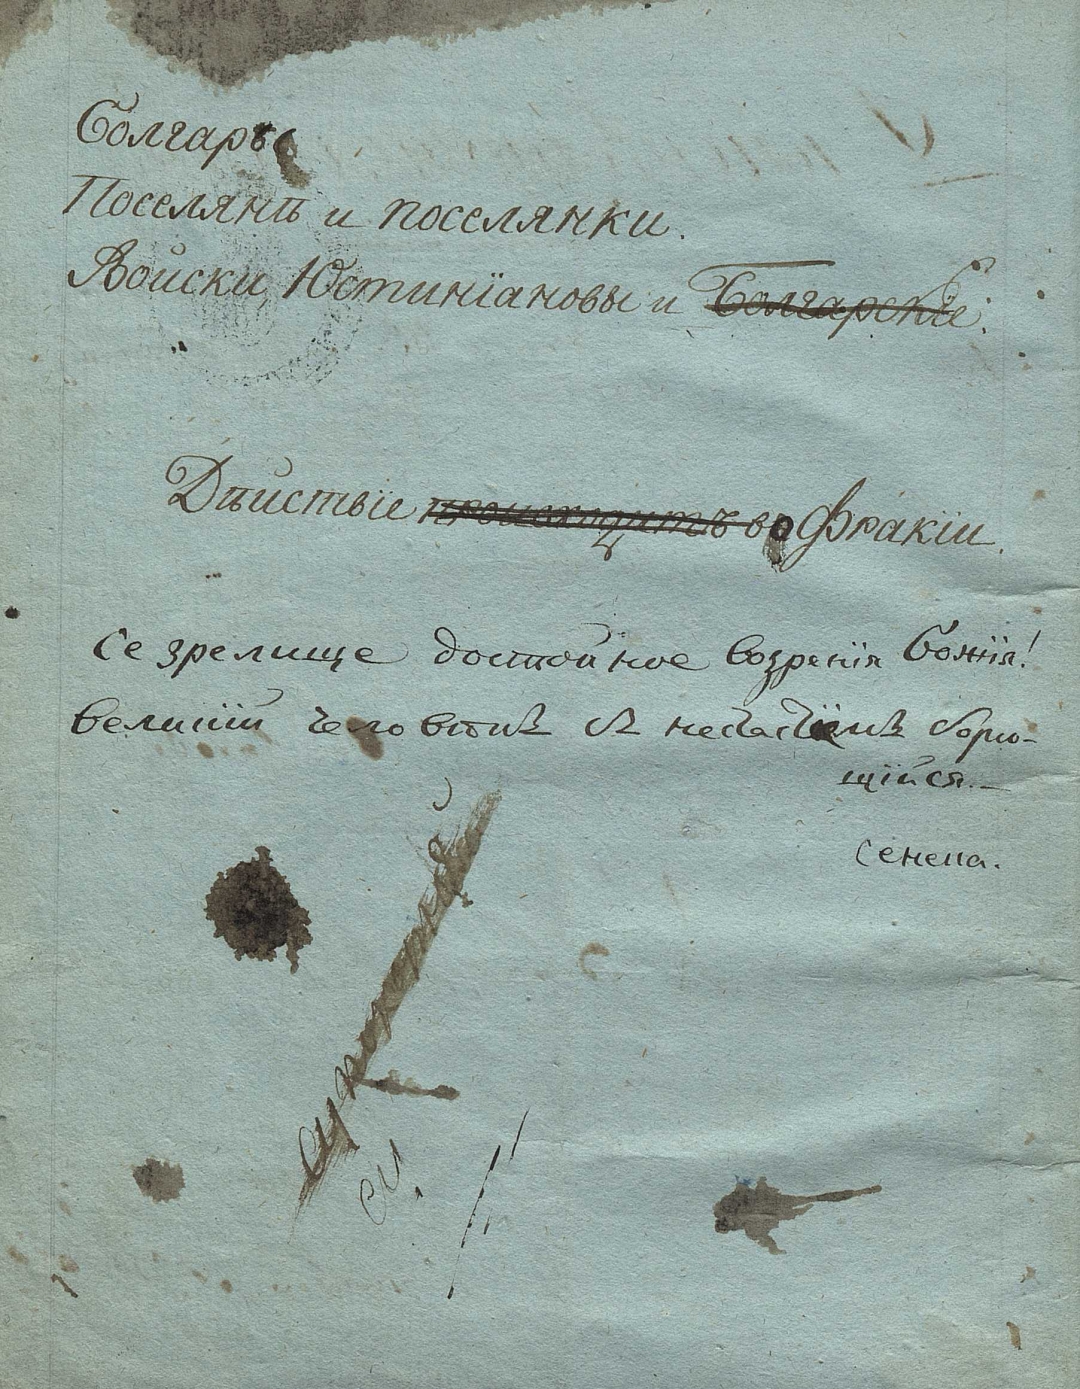 Болгаръ
Поселянѣ и поселянки.
Войски Юстинїановы и Болгарскїе.
Дѣйствїе происходитъ во Фракїи.
Се зрелище достойное возренїя Божїя!
великїй человѣкъ съ несчастїемъ борю-
щїйся.—
Сенека.